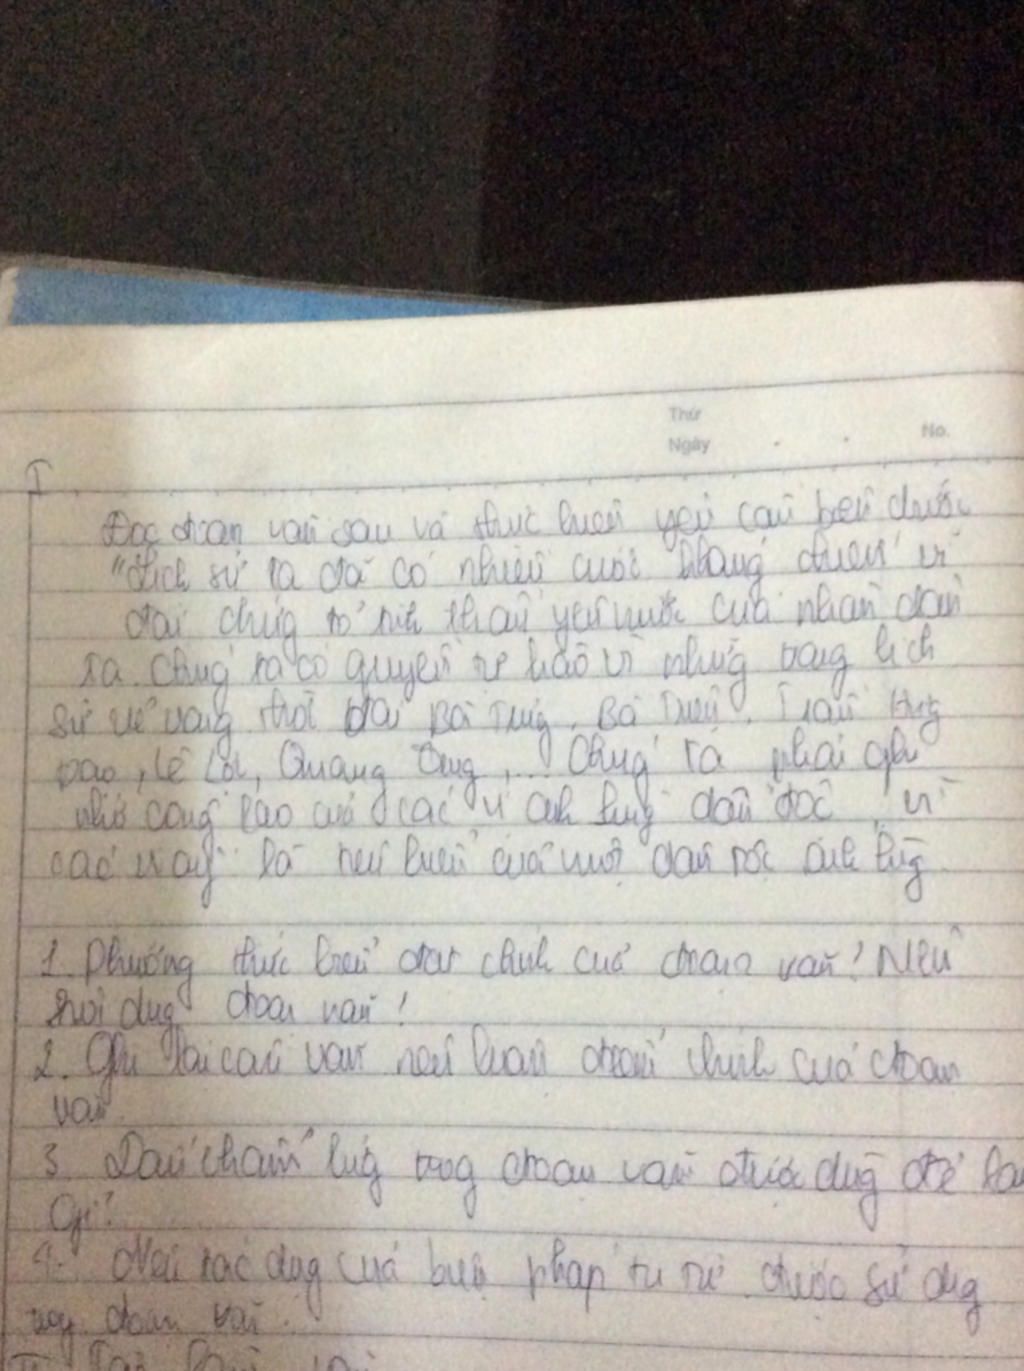 Thứ
Ngày
No.
I
Đọc đoạn văn sau và thực hiện yêu cầu bên dưới
"Lịch sử ta đã có nhiều cuộc kháng chiến vĩ
đại chứng tỏ tinh thần yêu nước của nhân dân
ta. Chúng ta có quyền tự hào vì những trang lịch
sử vẻ vang thời đại Bà Trưng, Bà Triệu, Trần Hưng
Đạo, Lê Lợi, Quang Trung,... Chúng ta phải ghi
nhớ công lao của các vị anh hùng dân tộc, vì
các vị ấy là tiêu biểu của một dân tộc anh hùng
1. Phương thức biểu đạt chính của đoạn văn? Nêu
nội dung đoạn văn?
2. Ghi lại câu văn nêu luận điểm chính của đoạn
văn.
3. Dấu chấm lửng trong đoạn văn được dùng để làm
gì?
4. Nêu tác dụng của biện pháp tu từ được sử dụng
đoạn văn.